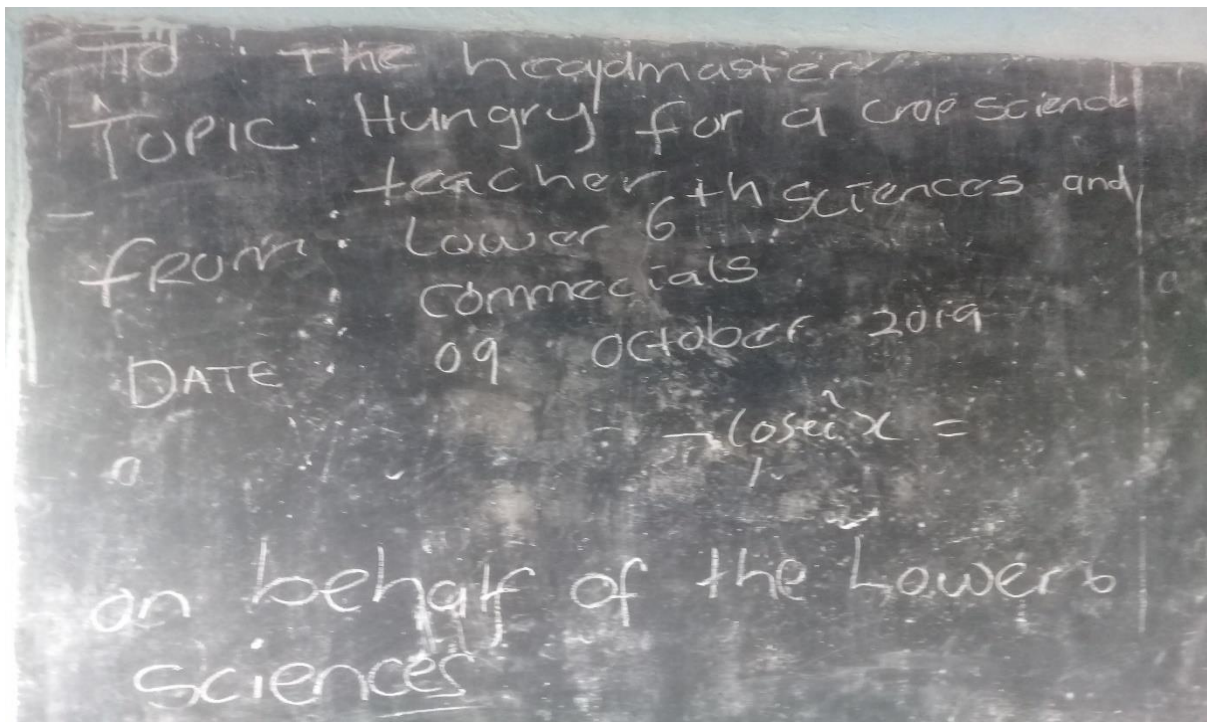 To : The headmaster
Topic : Hungry for a crop science
teacher
From : Lower 6th Sciences and
commecials
DATE : 09 October 2019
- cosec²x =
on behalf of the Lower 6
Sciences